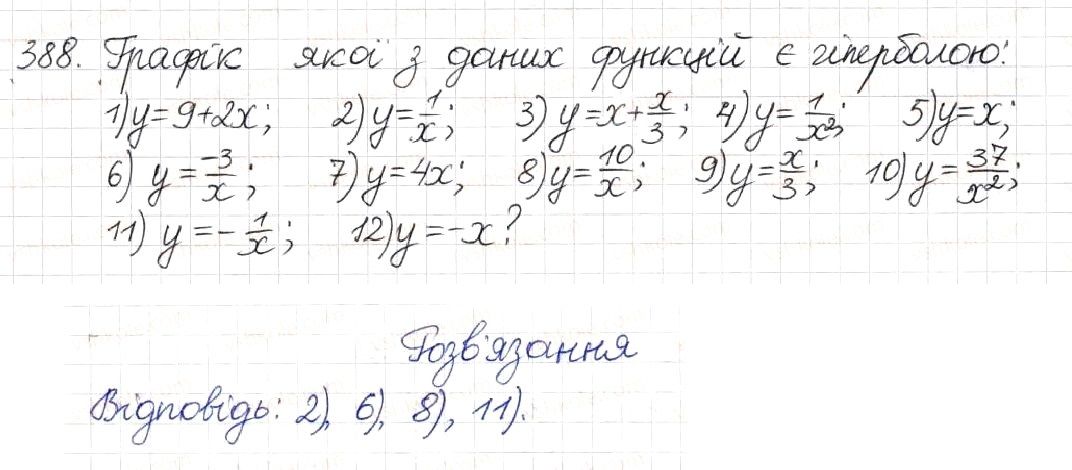 388. Графік якої з даних функцій є гіперболою:
1) y = 9+2x; 2) y = 1/x; 3) y = x + x/3; 4) y = 1/x²; 5) y = x;
6) y = -3/x; 7) y = 4x; 8) y = 10/x; 9) y = x/3; 10) y = 37/x²;
11) y = - 1/x; 12) y = -x?
Розв'язання
Відповідь: 2), 6), 8), 11).